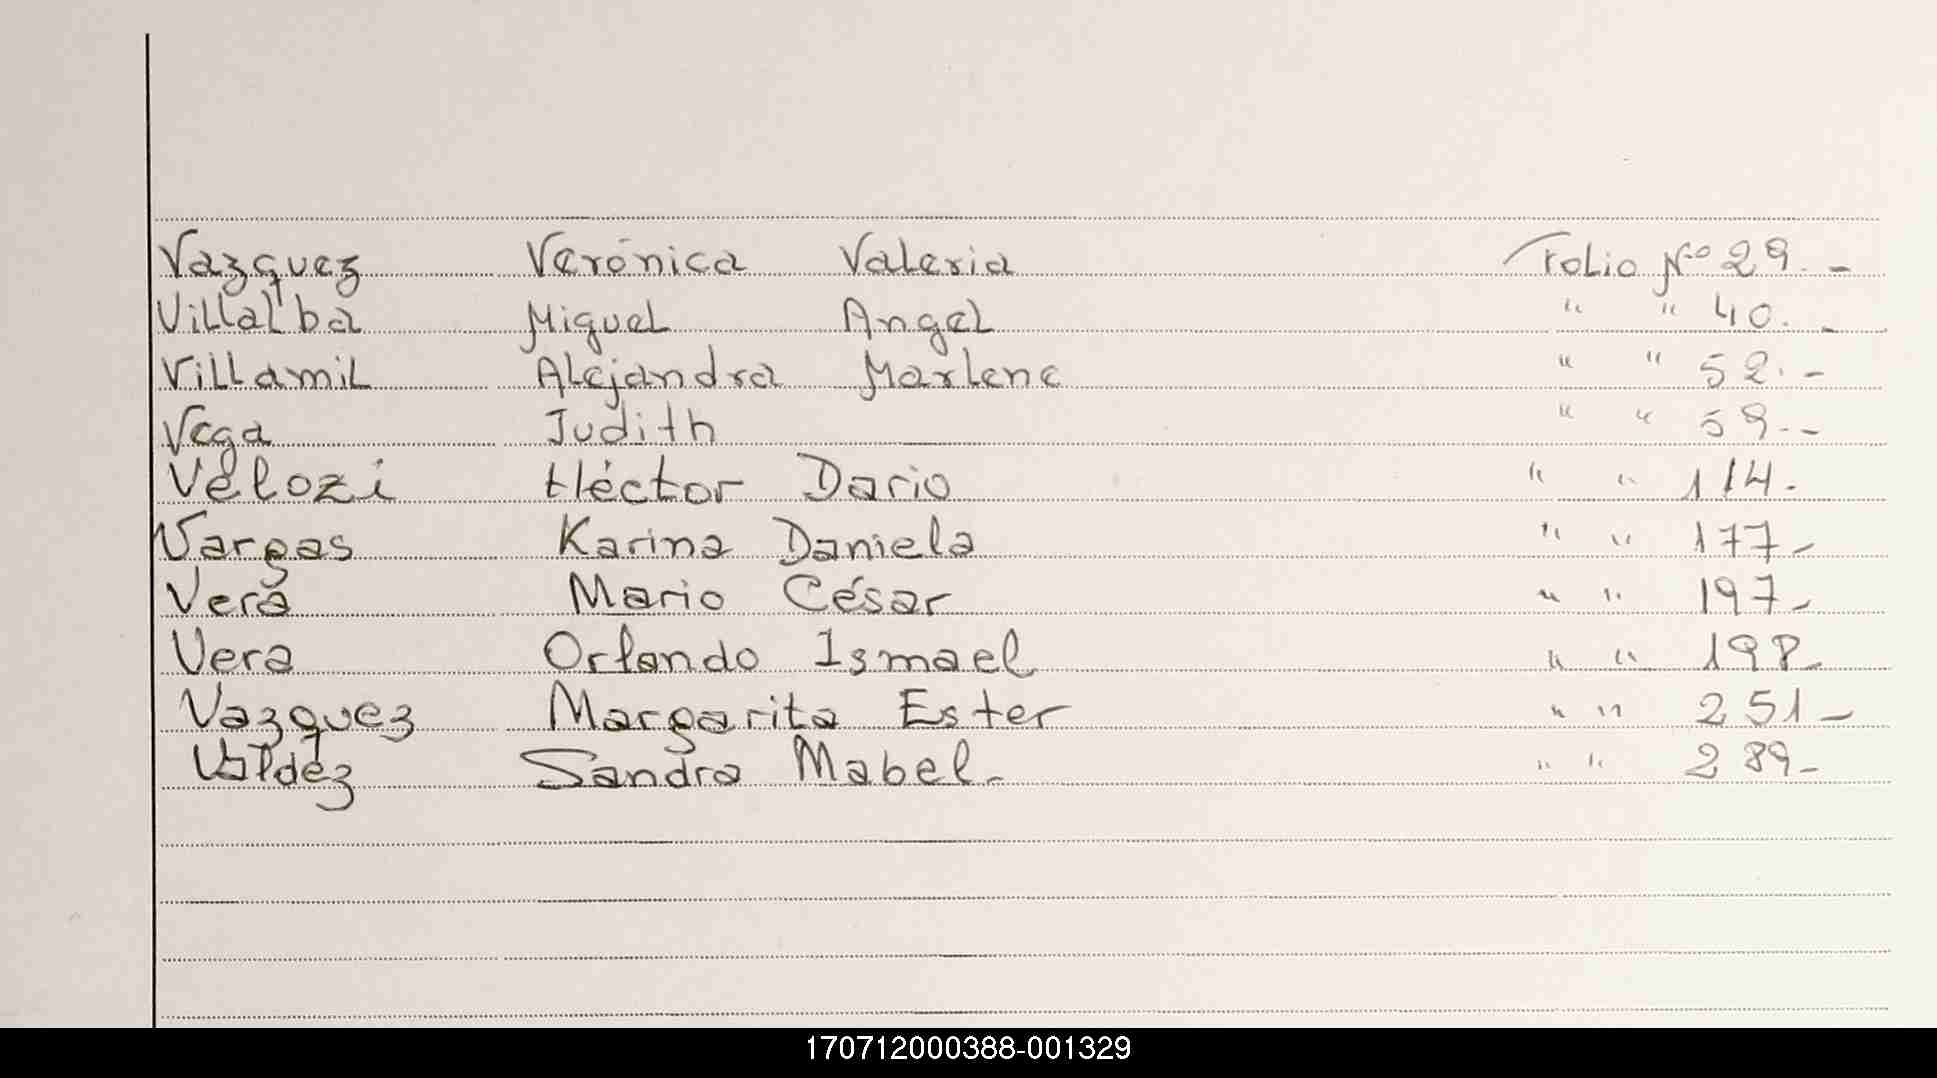 Vazquez Verónica Valeria Folio Nº 29.-
Villalba Miguel Angel " " 40.-
Villamil Alejandra Marlene " " 52.-
Vega Judith " " 59.-
Velozi Héctor Dario " " 114.
Vargas Karina Daniela " " 177-
Vera Mario César " " 197-
Vera Orlando Ismael " " 198-
Vazquez Margarita Ester " " 251-
Valdéz Sandra Mabel- " " 289-
170712000388-001329